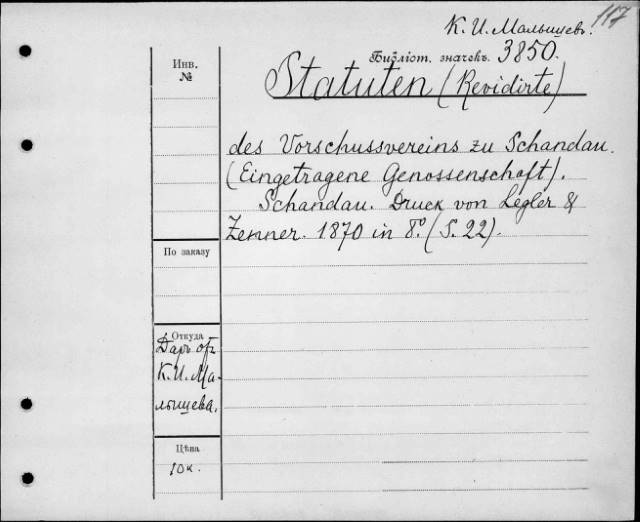 117
К. И. Малышевъ.
Библіот. значекъ. 3850.
Инв.
№
Statuten (Revidirte)
des Vorschussvereins zu Schandau.
(Eingetragene Genossenschaft).
Schandau. Druck von Legler &
Zenner. 1870 in 8º. (S. 22).
По заказу
Откуда
Даръ
К. И. Ма-
лышева.
Цѣна
10к.